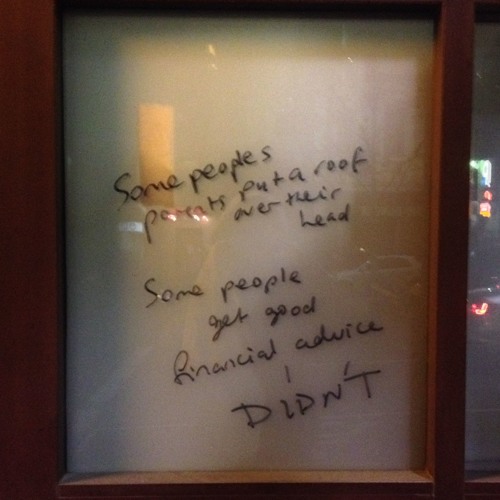 Some peoples
parents put a roof
over their
head
Some people
get good
financial advice
I
DIDN'T